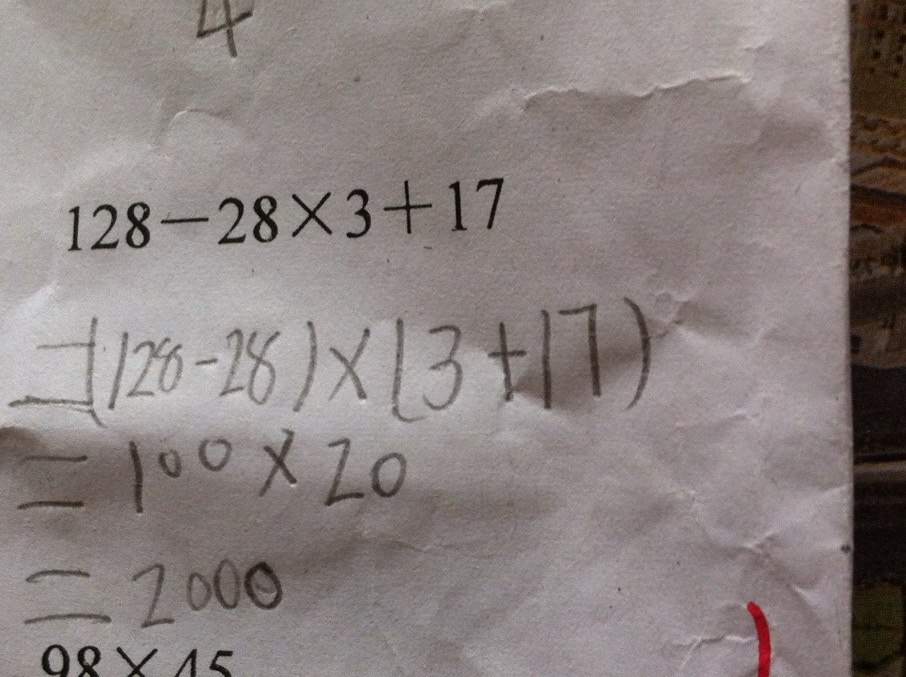 4
128－28×3＋17
=(128-28)×(3+17)
=100×20
=2000
98×45